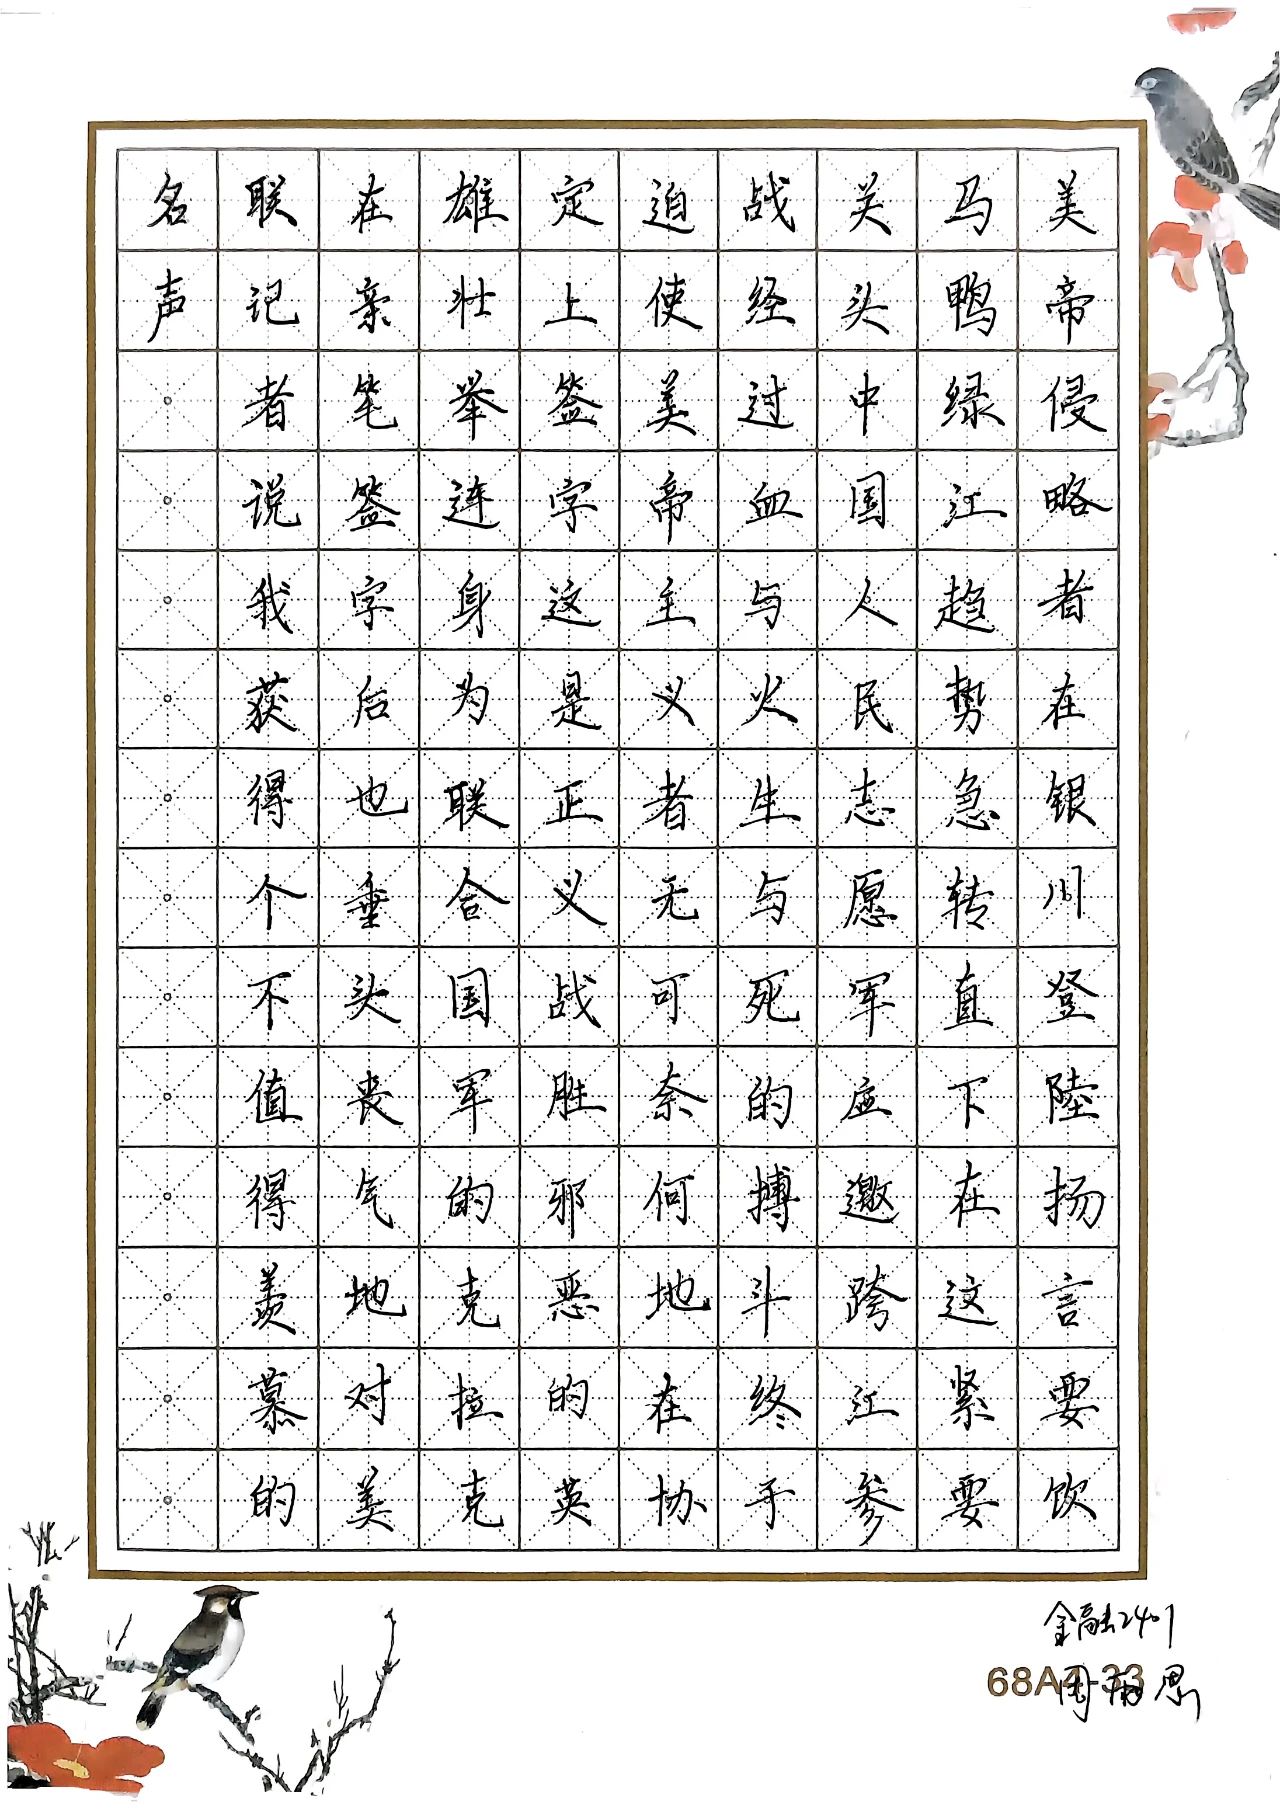 美帝侵略者在银川登陸扬言要饮
马鸭绿江趋势急转直下在这紧要
关头中国人民志愿军应邀跨江参
战经过血与火生与死的搏斗终于
迫使美帝主义者无可奈何地在协
定上签字这是正义战胜邪恶的英
雄壮举连身为联合国军的克拉克
在亲笔签字后也垂头丧气地对美
联记者说我获得个不值得羡慕的
名声
金融2401
68A4-33
周思